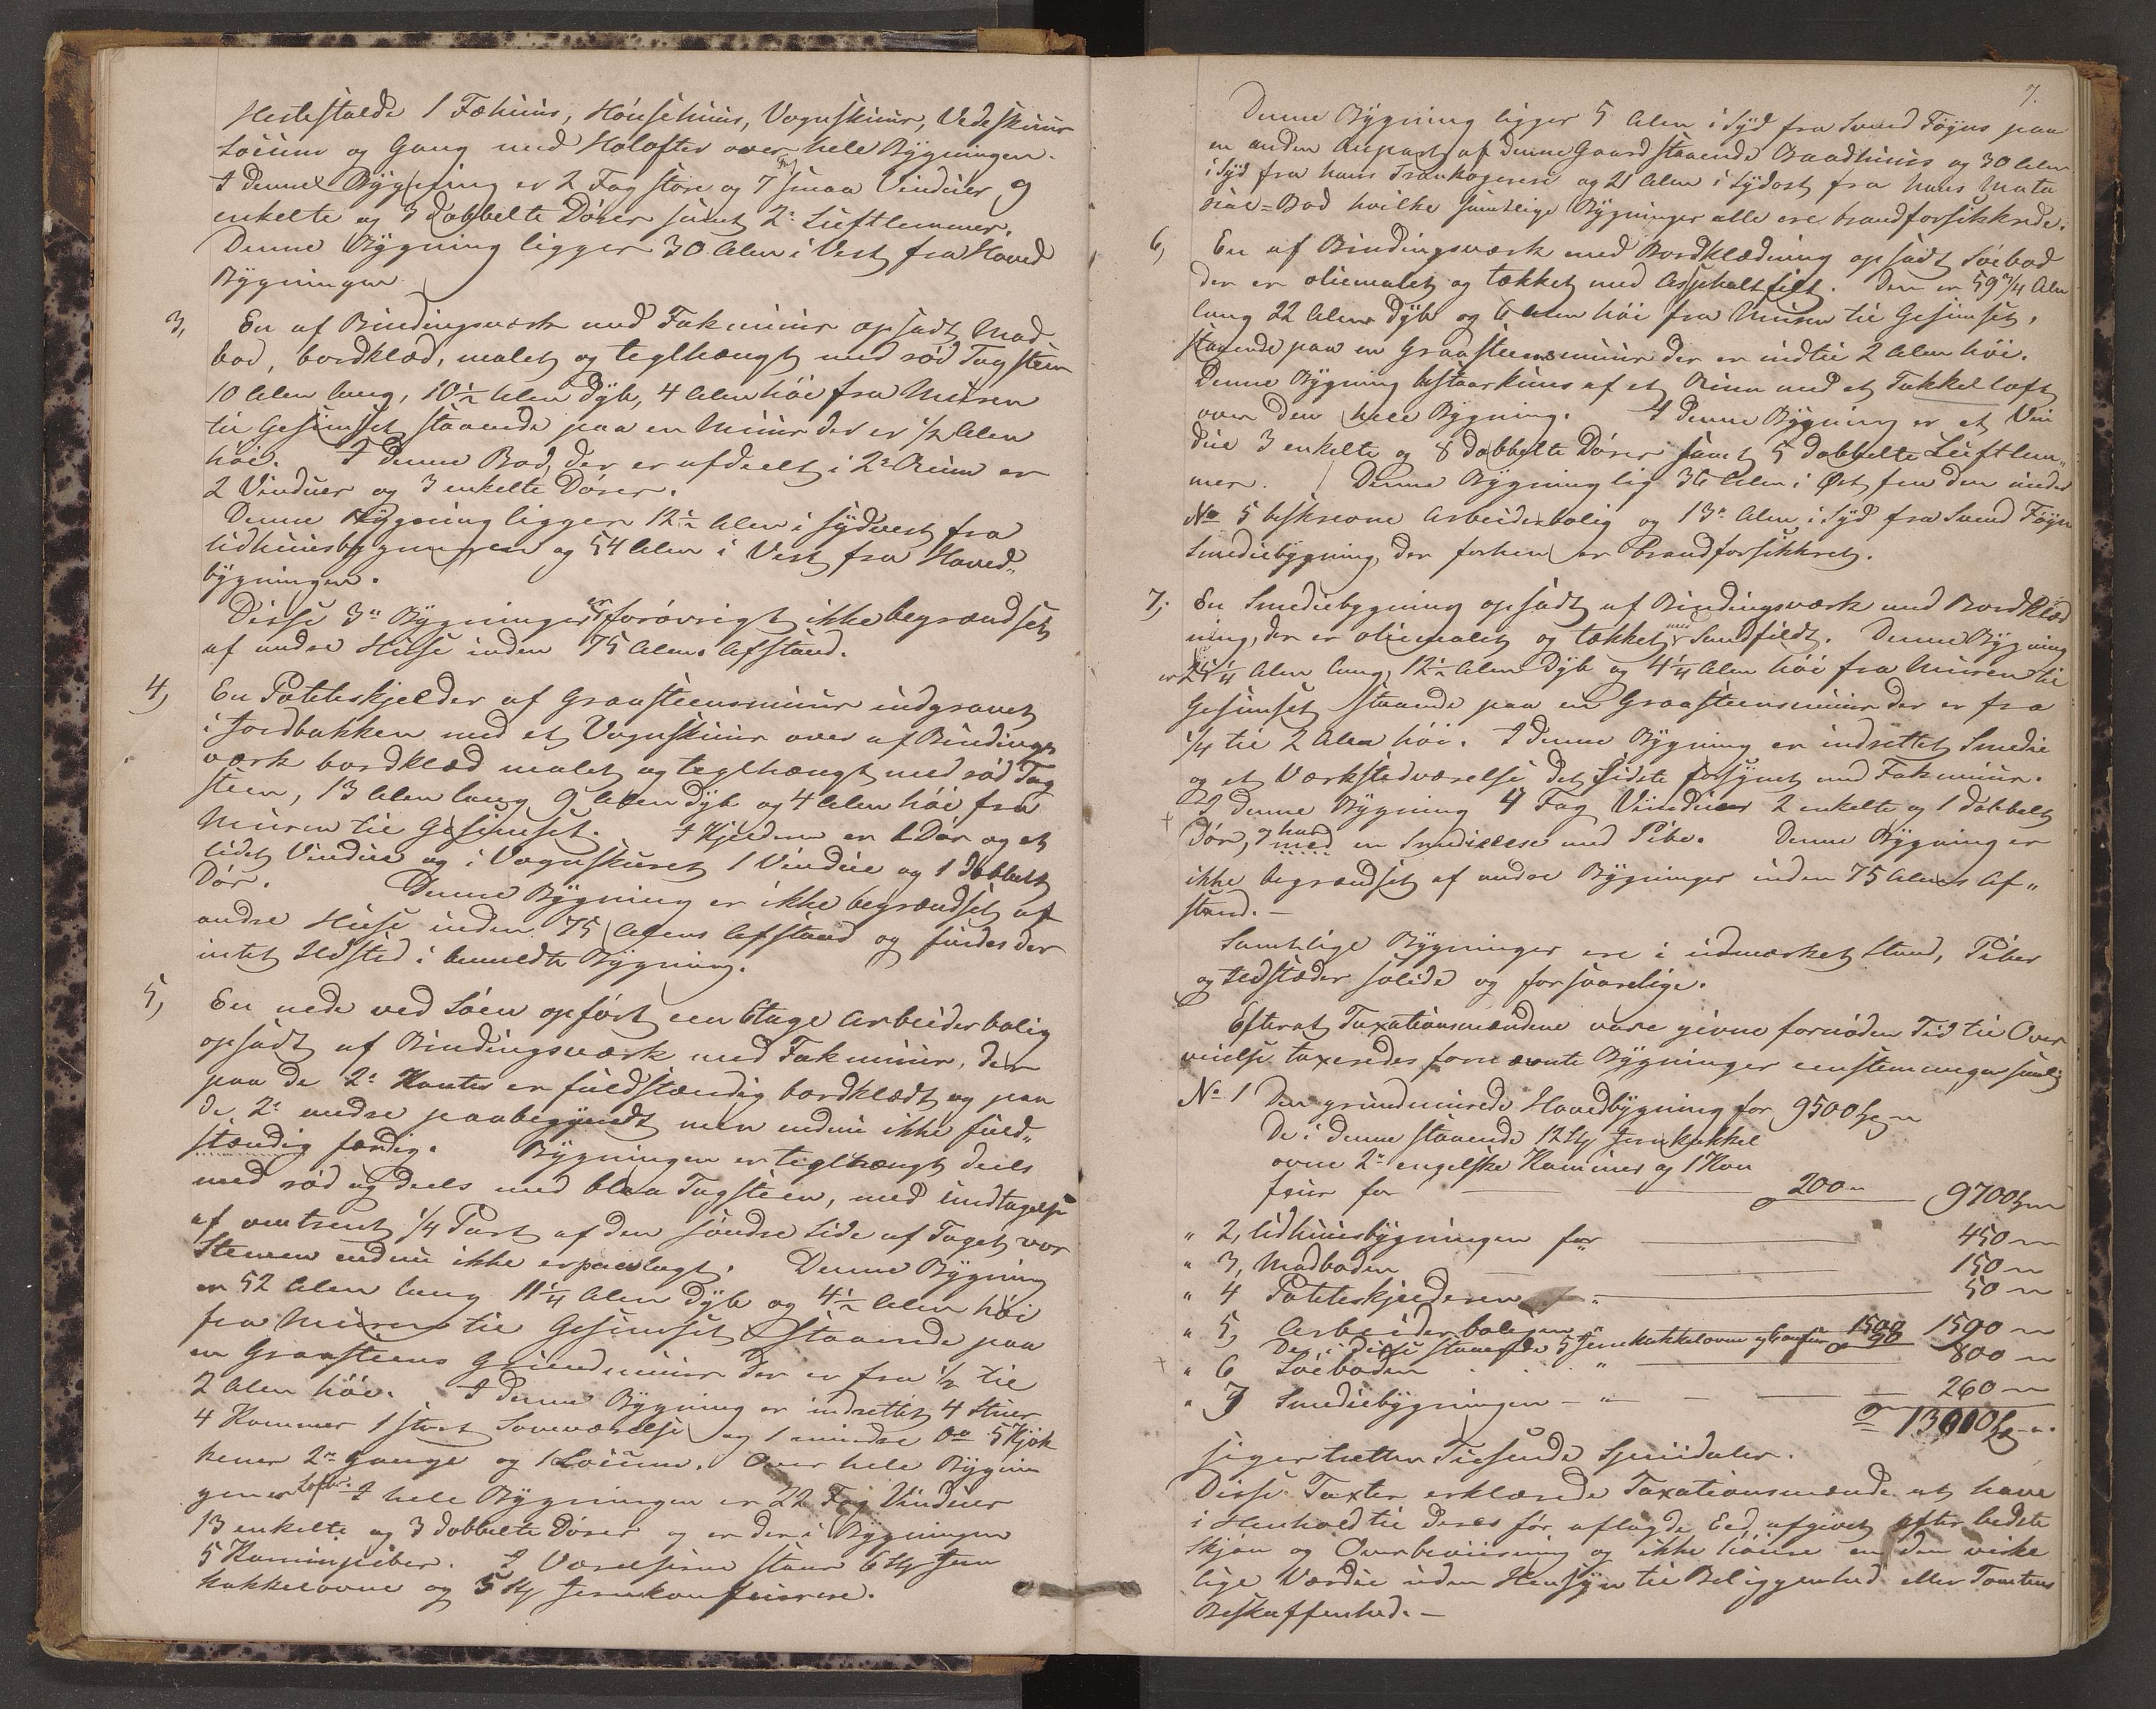 Hestestalde 1 Fæhuus, Hönsehuus, Vognskuur, Vedeskuur
Lóeium og Gang med Hølofter over hele Bygningen.
I denne Bygning er 2 Fag store og 7 Fag smaa Vinduer 9
enkelte og 3 dobbelte Dörer samt 2: Luftlemmer.
Denne Bygning ligger 30 Alen i Vest fra Hoved
Bygningen
3, En af Bindingsværk med Fakmuur opsadt Mad
bod, bordklæd, malet og teglhængt med röd Tagsteen
10 Alen lang, 10½ Alen dyb, 4 Alen höi fra Muren
til Gesimset staaende paa en Muur der er ½ Alen
höi. I denne Bod, der er afdeelt i 2: Rum er
2 Vinduer og 3 enkelte Dörer.
Denne Bygning ligger 12½ Alen i Sydvest fra
Udhuusbygningen og 54 Alen i Vest fra Hoved„
bygningen.
Disse 3" Bygninger er forövrigt ikke begrændset
af andre Huse inden 75 Alens Afstand.
4, En Potteskjelder af Graasteensmuur indgravet
i Jordbakken med et Vognskuur over af Bindings
værk bordklæd malet og teglhængt med röd Tag
steen, 13 Alen lang 9 Alen dyb og 4 Alen höi fra
Muren til Gesimset. I Kjelderen er 1 Dör og et
lidet Vindue og i Vognskuret 1 Vindue og 1 dobbelt
Dör. Denne Bygning er ikke begrændset af
andre Huse inden 75 Alens Afstand og findes der
intet Ildsted i bemeldte Bygning.
5, En nede ved Söen opfört een Etage Arbeiderbolig
opsadt af Bindingsværk med Fakmuur, der
paa de 2: Kanter er fuldstændig bordklædt og paa
de 2: andre paabegyndt men endnu ikke fuld„
stændig færdig. Bygningen er teglhængt deels
med röd og deels med blaa Tagsteen, med Undtagelse
af omtrent ¼ Part af den söndre Side af Taget, vor
Stenen endnu ikke er paalagt. Denne Bygning
er 52 Alen lang 11¼ Alen dyb og 4½ Alen höi
fra Muren til Gesimset staaende paa
en Graasteens Grundmuur der er fra ½ til
2 Alen höi. I denne Bygning er indrettet 4 Stuer
4 Kammer 1 stort Soveværelse og 1 mindre do 5 Kjök
kener 2" Gange og 1 Lóeium. Over hele Bygnin
gen er Lofter. I hele Bygningen er 22 Fag Vinduer
13 enkelte og 3 dobbelte Dörer og er der i Bygningen
5 Kaminpiber. I Værelserne staar 6 Stk Jern
kakkelovne og 5 Stk Jernkomfuurere.
7.
Denne Bygning ligger 5 Alen i Syd fra Svend Föyns paa
en anden Anpart af denne Gaard staaende Baadhuus og 30 Alen
i Syd fra hans Trankogerie og 21 Alen i Sydost fra hans Mate
rial=Bod hvilke samtlige Bygninger alle ere brandforsikkrede.
6, En af Bindingsværk med Bordklædning opsadt Söebod
der er oliemalet og tækket med Asphaltfilt. Den er 59¾ Alen
lang 22 Alen dyb og 6 Alen höi fra Muren til Gesimset,
staaende paa en Graasteensmuur der er indtil 2 Alen höi.
Denne Bygning bestaar kuns af et Rum med et Takkelloft
over den hele Bygning. I denne Bygning er et Vin
due 3 enkelte og 8 dobbelte Dörer samt 5 dobbelte Luftlem„
mer. Denne Bygning lig 36 Alen i Öst fra den under
No 5 beskrevne Arbeiderbolig og 13" Alen i Syd fra Svend Föyns
Smediebygning, der forhen er brandforsikkret.
7, En Smediebygning opsadt af Bindingsværk med Bordklæd
ning, der er oliemalet og tækket med Sandfildt. Denne Bygning
er 25¼ Alen lang, 12½ Alen dyb og 4¼ Alen höi fra Muren til
Gesimset staaende paa en Graasteensmuur der er fra
¼ til 2 Alen höi. I denne Bygning er indrettet Smedie
og et Værkstedværelse det sidste forsynet med Fakmuur.
I denne Bygning 4 Fag Vinduer 2 enkelte og 1 dobbelt
Dör, og har en Smedieesse med Pibe. Denne Bygning er
ikke begrændset af andre Bygninger inden 75 Alens Af„
stand.—
Samtlige Bygninger ere i udmærket Stand, Piber
og Ildstæder solide og forsvarlige.
Efterat Taxationsmændene vare givne fornöden Tid til Over
veielse taxeredes fornævnte Bygninger eenstemmigen saaledes
No 1 Den grundmurede Hovedbygning for 9500 Spd
De i denne staaende 12 Stk Jernkakkel
ovne 2" engelske Kaminer og 1 Kom
fuur for 200" 9700 Spd
" 2, Udhuusbygningen for 450 "
" 3, Madboden 150 "
" 4 Potteskjelderen " 50 "
" 5, Arbeiderboligen " 1500
De i disse staaende 5 Jernkakkelovne og Comfur 90 1590 "
" 6 Söeboden " 800 "
" 7 Smediebygningen — " 260 "
13000 Spd
siger tretten Tusende Speciedaler.
Disse Taxter erklærede Taxationsmænde at have
i Henhold til deres för aflagde Eed afgivet efter bedste
Skjön og Overbeviisning og ikke höiere end den virke
lige Værdie uden Hensyn til Beliggenhed eller Tomtens
Beskaffenhed.—